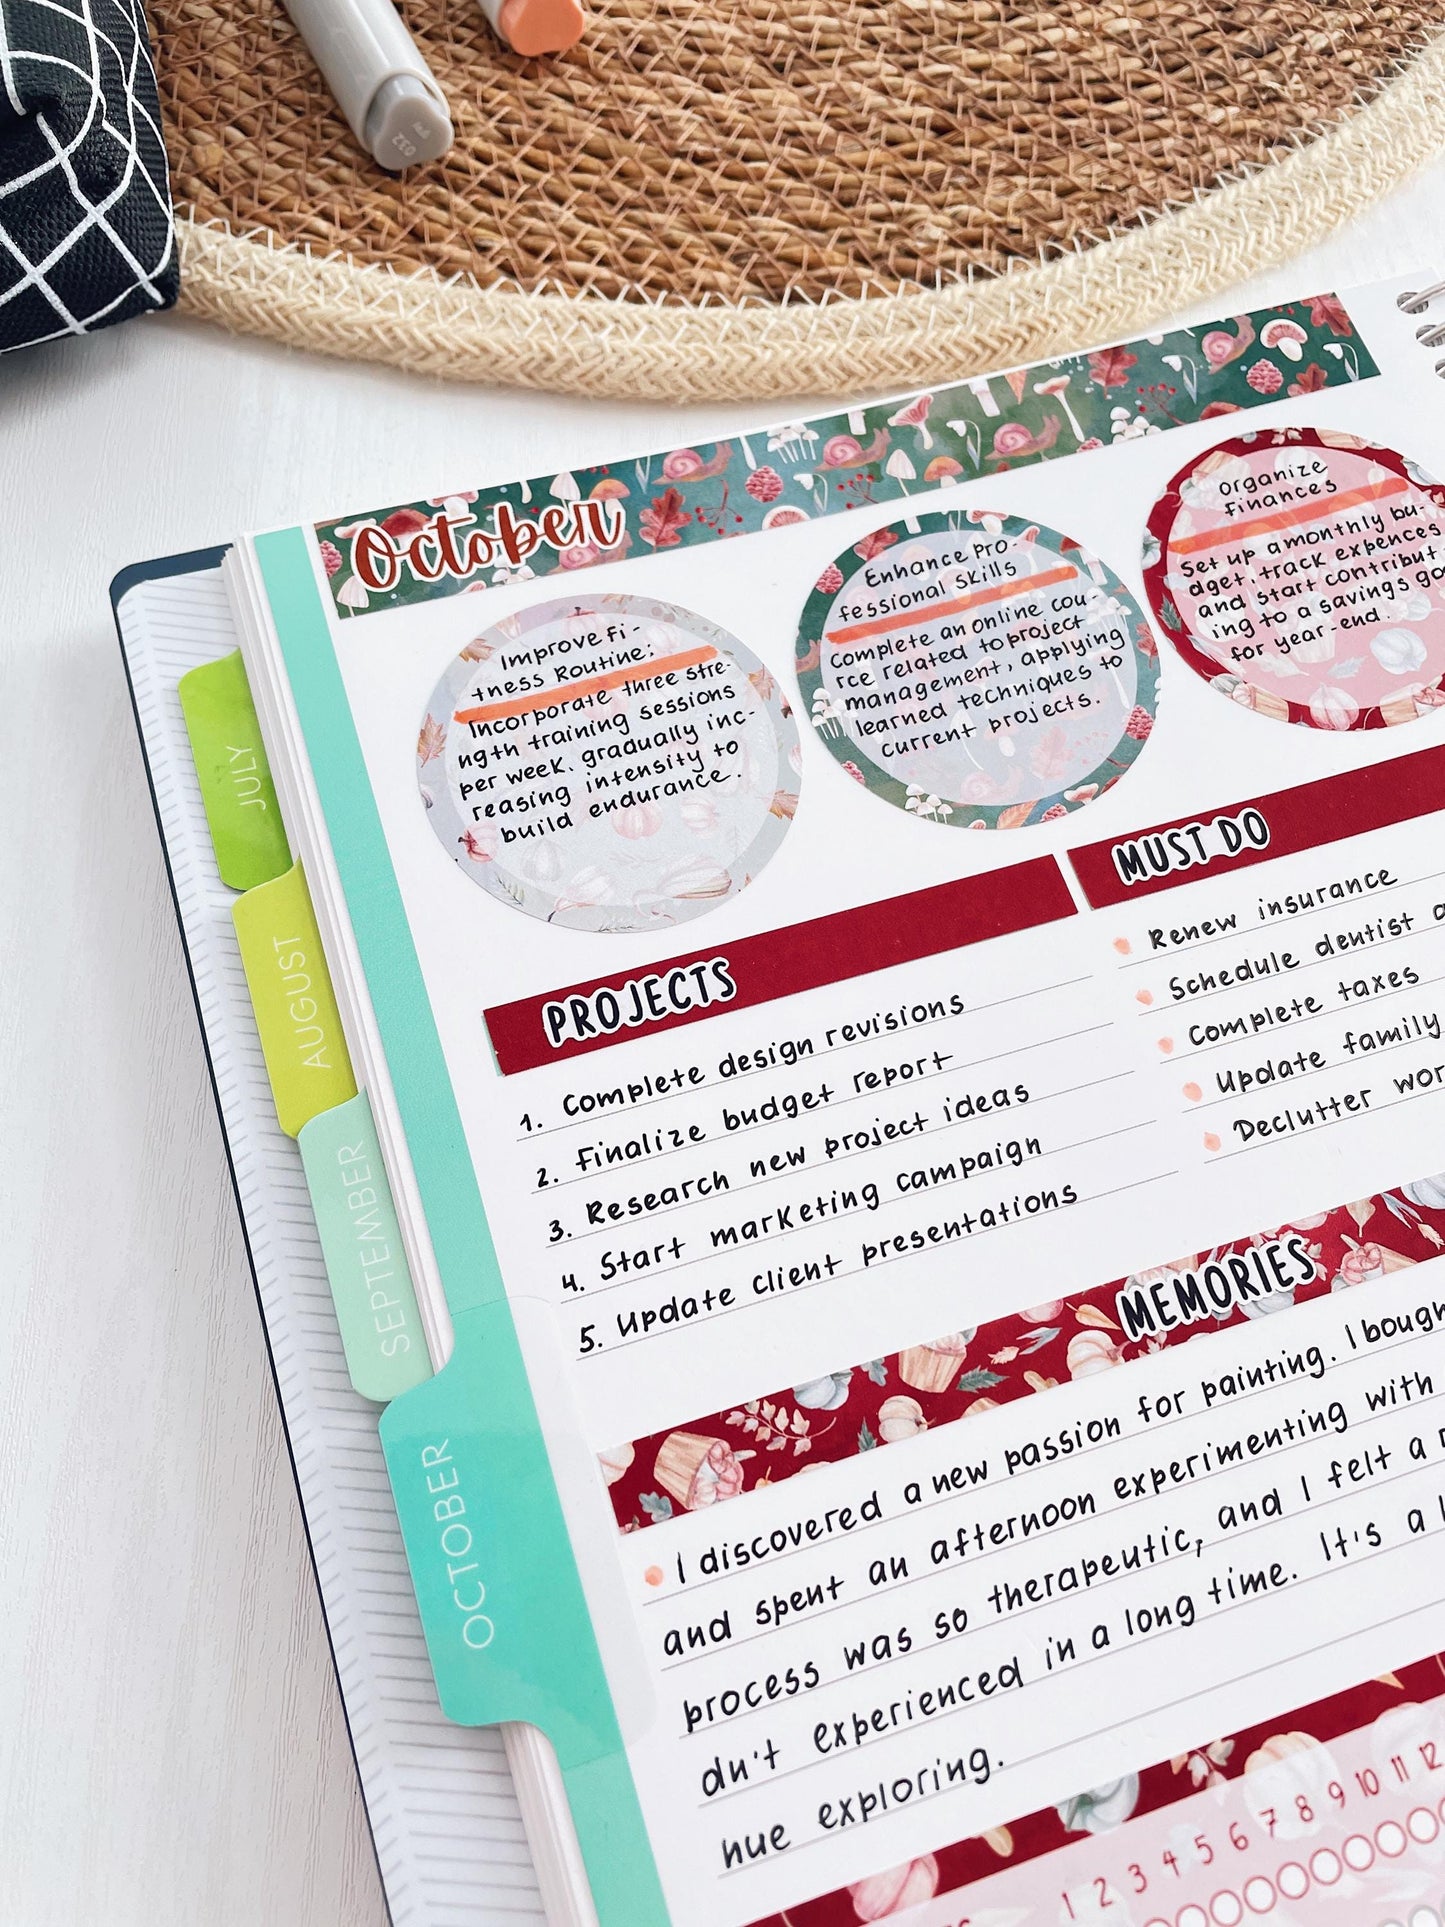 032
October
Improve fi-
tness Routine:
Incorporate three stre-
ngth training sessions
per week, gradually inc-
reasing intensity to
build endurance.
Enhance pro-
fessional skills
Complete an online cou-
rce related to project
management, applying
learned techniques to
current projects.
Organize
finances
Set up a monthly bu-
dget, track expences
and start contribut
ing to a savings go
for year-end.
PROJECTS
1. Complete design revisions
2. Finalize budget report
3. Research new project ideas
4. Start marketing campaign
5. Update client presentations
MUST DO
Renew insurance
Schedule dentist
Complete taxes
Update family
Declutter wor
MEMORIES
I discovered a new passion for painting. I bough
and spent an afternoon experimenting with
process was so therapeutic, and I felt a
dn't experienced in a long time. It's a
nue exploring.
1 2 3 4 5 6 7 8 9 10 11 12
JULY
AUGUST
SEPTEMBER
OCTOBER